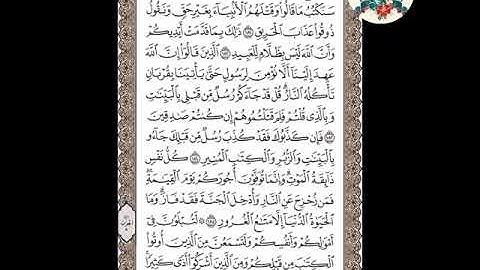 سَنَكْتُبُ مَا قَالُوا۟ وَقَتْلَهُمُ ٱلْأَنۢبِيَآءَ بِغَيْرِ حَقٍّ وَنَقُولُ
ذُوقُوا۟ عَذَابَ ٱلْحَرِيقِ ۝١٨١ ذَٰلِكَ بِمَا قَدَّمَتْ أَيْدِيكُمْ
وَأَنَّ ٱللَّهَ لَيْسَ بِظَلَّامٍ لِّلْعَبِيدِ ۝١٨٢ ٱلَّذِينَ قَالُوٓا۟ إِنَّ ٱللَّهَ
عَهِدَ إِلَيْنَآ أَلَّا نُؤْمِنَ لِرَسُولٍ حَتَّىٰ يَأْتِيَنَا بِقُرْبَانٍ
تَأْكُلُهُ ٱلنَّارُ ۗ قُلْ قَدْ جَآءَكُمْ رُسُلٌ مِّن قَبْلِى بِٱلْبَيِّنَٰتِ
وَبِٱلَّذِى قُلْتُمْ فَلِمَ قَتَلْتُمُوهُمْ إِن كُنتُمْ صَٰدِقِينَ
۝١٨٣ فَإِن كَذَّبُوكَ فَقَدْ كُذِّبَ رُسُلٌ مِّن قَبْلِكَ جَآءُو
بِٱلْبَيِّنَٰتِ وَٱلزُّبُرِ وَٱلْكِتَٰبِ ٱلْمُنِيرِ ۝١٨٤ كُلُّ نَفْسٍ
ذَآئِقَةُ ٱلْمَوْتِ ۗ وَإِنَّمَا تُوَفَّوْنَ أُجُورَكُمْ يَوْمَ ٱلْقِيَٰمَةِ ۖ
فَمَن زُحْزِحَ عَنِ ٱلنَّارِ وَأُدْخِلَ ٱلْجَنَّةَ فَقَدْ فَازَ ۗ وَمَا
ٱلْحَيَوٰةُ ٱلدُّنْيَآ إِلَّا مَتَٰعُ ٱلْغُرُورِ ۝١٨٥ لَتُبْلَوُنَّ فِىٓ
أَمْوَٰلِكُمْ وَأَنفُسِكُمْ وَلَتَسْمَعُنَّ مِنَ ٱلَّذِينَ أُوتُوا۟
ٱلْكِتَٰبَ مِن قَبْلِكُمْ وَمِنَ ٱلَّذِينَ أَشْرَكُوٓا۟ أَذًى كَثِيرًا ۚ